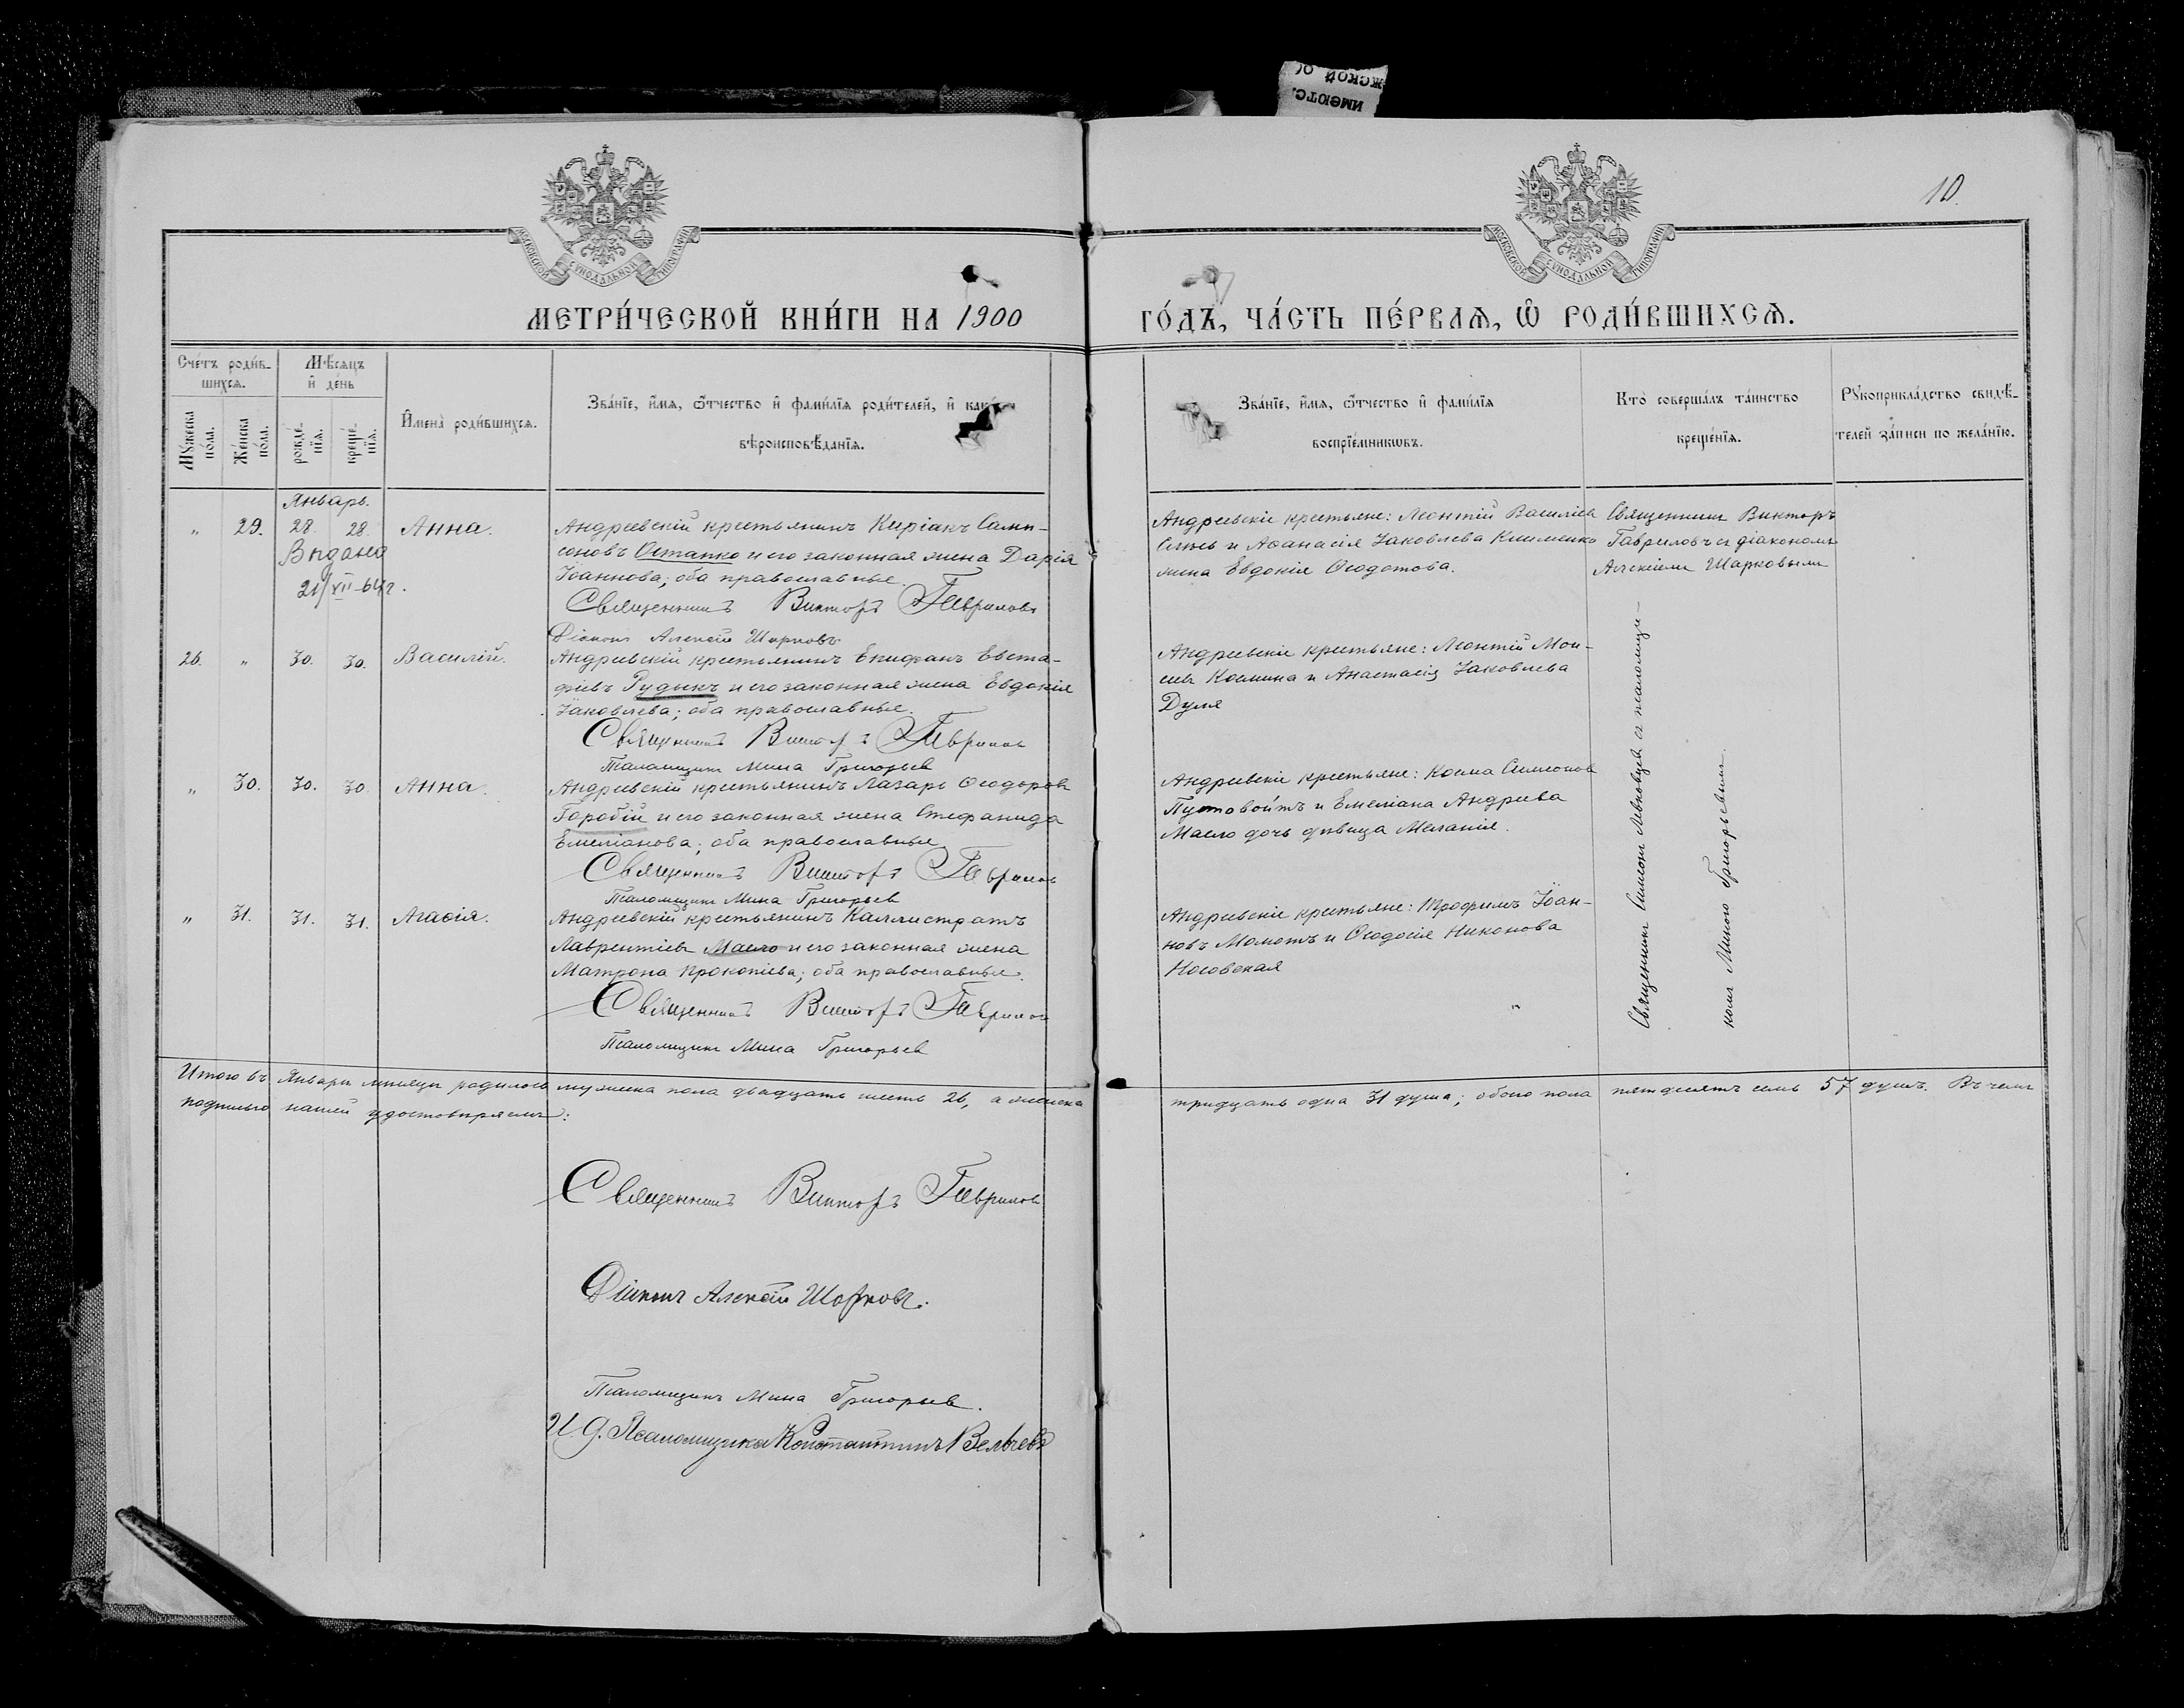 10.
МОСКОВСКОЙ СѴНОДАЛЬНОЙ ТИПОГРАФІИ
МОСКОВСКОЙ СѴНОДАЛЬНОЙ ТИПОГРАФІИ
МЕТРИ́ЧЕСКОЙ КНИ́ГИ НА 1900
ГО́ДЪ, ЧА́СТЬ ПЕ́РВАѦ, Ѡ҆ РОДИ́ВШИХСѦ.
Сче́тъ роди́в-
шихсѧ.
Мꙋ́жеска по́ла.
Же́нска по́ла.
Мѣ́сѧцъ
и҆ де́нь
рожде́-
нїѧ.
креще́-
нїѧ.
И҆мена̀ роди́вшихсѧ.
Зва́нїе, и҆́мѧ, ѻ҆́тчество и҆ фами́лїѧ роди́телей, и҆
вѣроисповѣ́данїѧ.
Зва́нїе, и҆́мѧ, ѻ҆́тчество и҆ фами́лїѧ
воспрїе́мникѡвъ.
Кто̀ соверша́лъ та́инство
креще́нїѧ.
Рꙋкоприкла́дство свидѣ́-
телей за́писи по жела́нїю.
Январь.
„ 29. 28. 28. Анна.
Выдана
21/XII-64г.
Андреевскій крестьянинъ Киріакъ Самп-
соновъ Остапко и его законная жена Дарія
Іоаннова; оба православные.
Священникъ Викторъ Гавриловъ
Діаконъ Алексій Шарковъ
Андреевскіе крестьяне: Леонтій Василіев
и Аѳанасія Іаковлева Клименко
жена Евдокія Ѳеодотова.
Священникъ Викторъ
Гавриловъ съ діакономъ
Алексіемъ Шарковымъ
26. „ 30. 30. Василій.
Андреевскій крестьянинъ Епифанъ Евста-
фіевъ Рудыкъ и его законная жена Евдокія
Іаковлева; оба православные.
Священникъ Викторъ Гаврилов
Псаломщикъ Мина Григорьев
Андреевскіе крестьяне: Леонтій Мои-
сеев Космина и Анастасія Іаковлева
Дуля
„ 30. 30. 30. Анна.
Андреевскій крестьянинъ Лазарь Ѳеодоров
Горобій и его законная жена Стефанида
Емеліанова; оба православные
Священникъ Викторъ Гаврилов
Псаломщикъ Мина Григорьев
Андреевскіе крестьяне: Косма Симеонов
Пустовойтъ и Емеліана Андреева
Масло дочь дѣвица Меланія.
„ 31. 31. 31. Агаѳія.
Андреевскій крестьянинъ Каллистратъ
Лаврентіевъ Масло и его законная жена
Матрона Прокопіева; оба православные.
Священникъ Викторъ Гаврилов
Псаломщикъ Мина Григорьев
Андреевскіе крестьяне: Трофимъ Іоан-
новъ Момотъ и Ѳеодосія Никонова
Носовская
Священникъ Симеонъ съ псаломщи-
комъ Миною Григорьевымъ.
Итого въ Январѣ мѣсяцѣ родилось мужеска пола двадцать шесть 26, а женска
тридцать одна 31 душа; обоего пола пятдесятъ семь 57 душъ. Въ чемъ
подписью нашей удостовѣряемъ:
Священникъ Викторъ Гаврилов
Діаконъ Алексій Шарковъ.
Псаломщикъ Мина Григорьев.
И. д. Псаломщика Константинъ